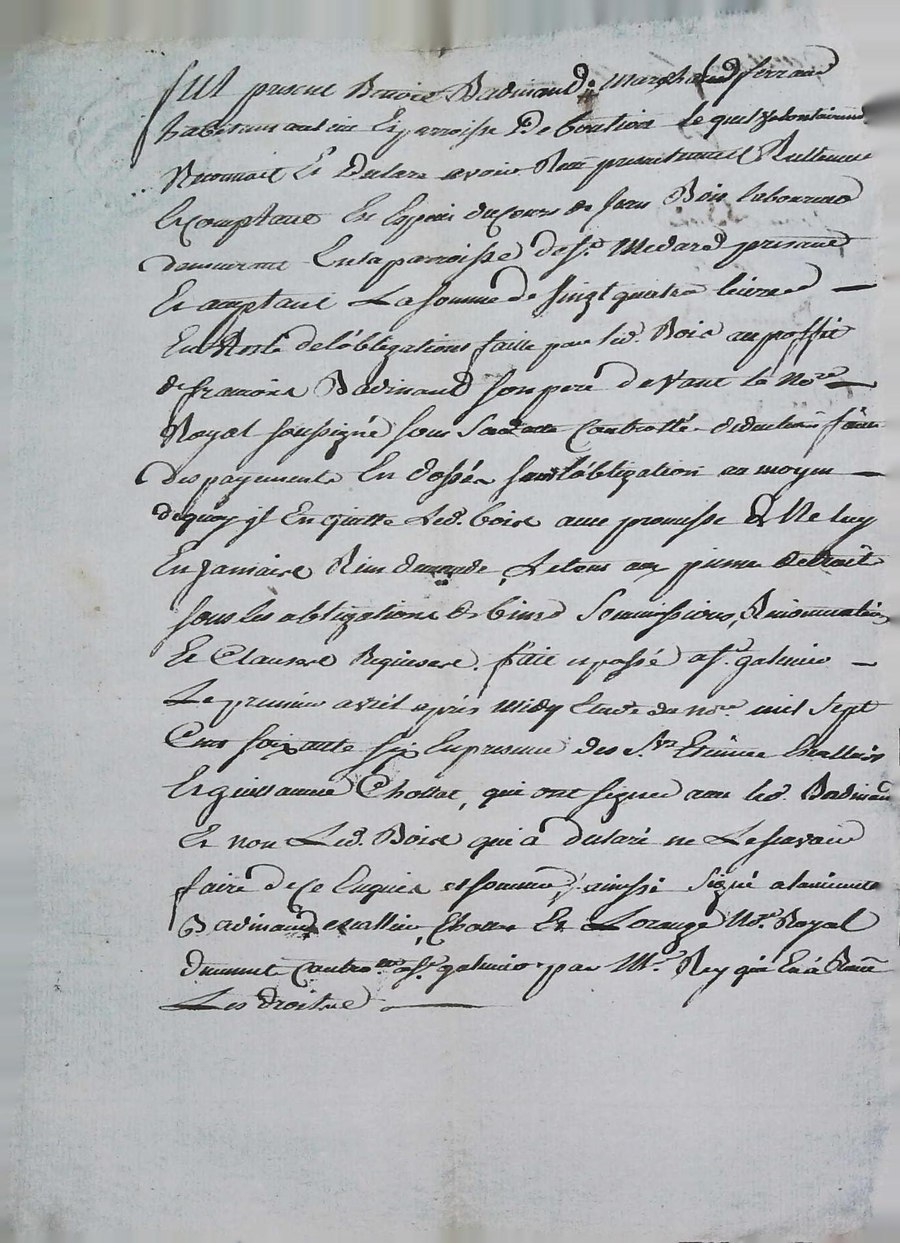 fut present Benoit Badinand Marechal ferrand
habitant au lieu Et parroisse De boution Lequel Volontairement
Reconnait Et Declare avoir Recu presentement Reellement
Et comptant En Espece du Cours de Jean Bois laboureur
demeurant En la parroisse de St. Medard present
Et acceptant La somme de Vingt quatre livres
En Reste de l'obligations faitte par led. Bois au proffit
de francois Badinand son pere devant le nore.
Royal soussigné sous Sa datte Controllé deductions faitte
des payements En dossés sur l'obligation au moyen
de quoy jl En quitte Led. bois avec promesse de Ne luy
En jamais Rien demande, Le tous aux peines de droit
sous les obligations de biens Soumissions, Renonciation
Et Clauses Requises. fait et passé a St. galmier
Le premier avril apres Midy Etude du nore. mil Sept
Cens soixante six En presence des Srs. Etienne
Et guillaume Chollet, qui ont signé avec led. Badinand
Et non Led. Bois qui à declaré ne Le scavoir
faire de ce Enquis et sommé, ainssi Signé a la minutte
Badinand, Chollet Et Lorange Nore. Royal
dument Controllé a St. galmier par Mr. Rey qui En à Recu
Les droits